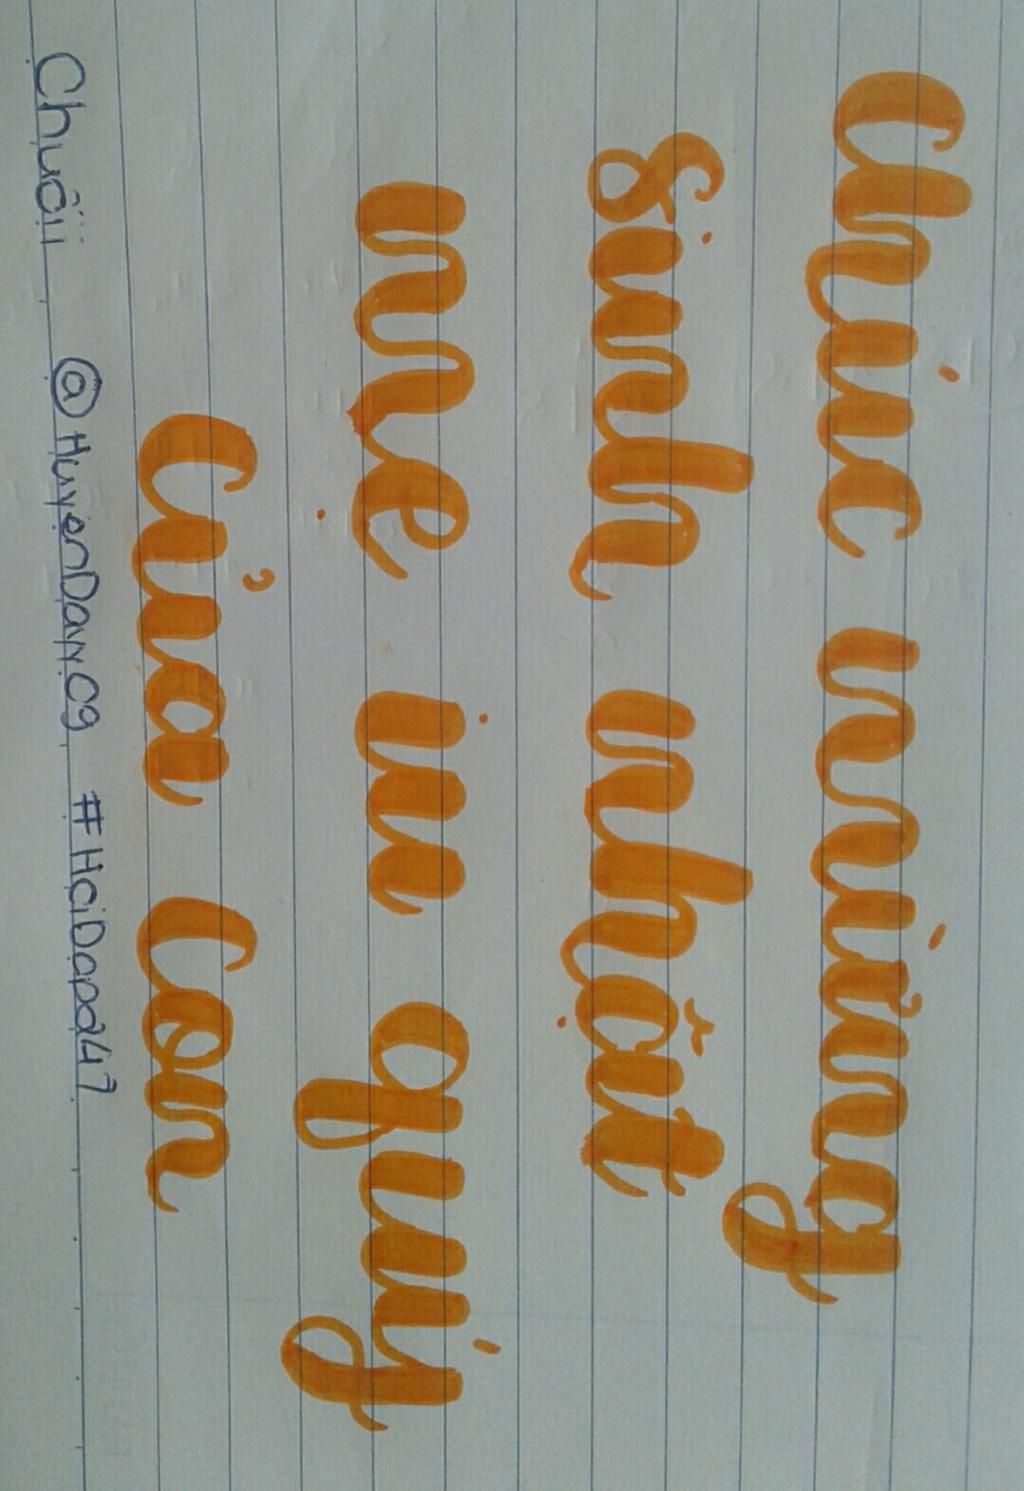 Chúc mừng
sinh nhật
mẹ iu quý
của con
Chuốii @HuyenDayy09 #HciDopa247